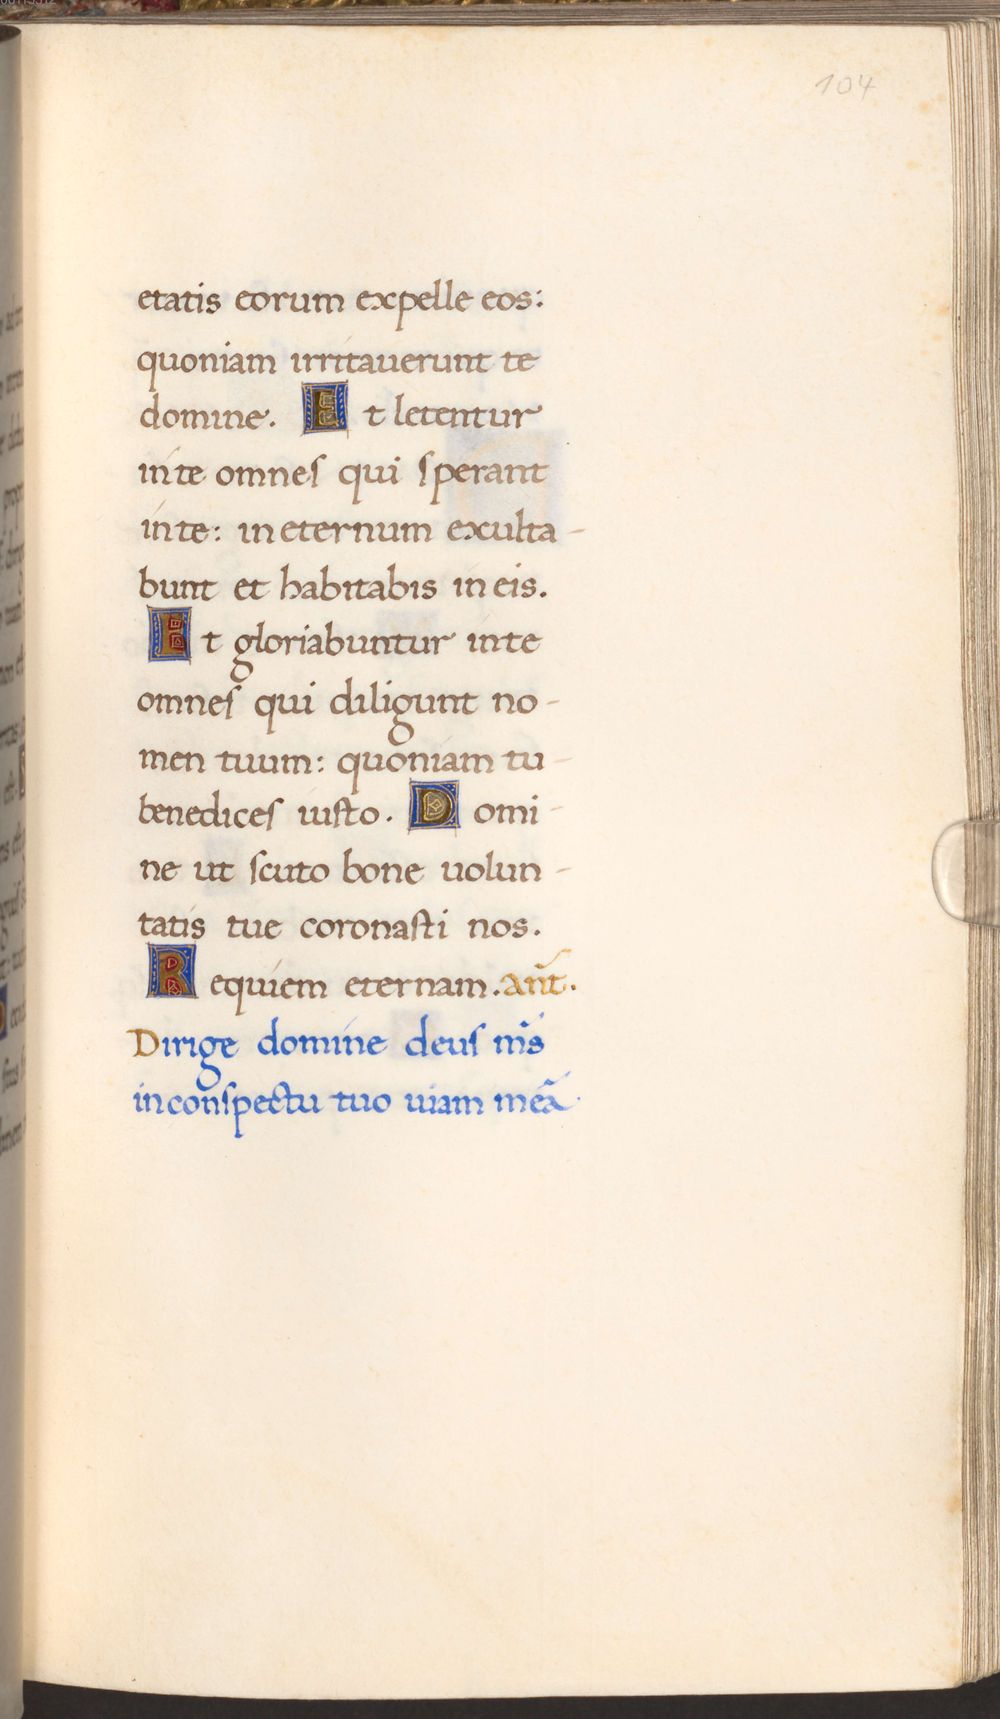 104
etatis eorum expelle eos:
quoniam irritauerunt te
domine. Et letentur
in te omnes qui sperant
in te: in eternum exulta-
bunt et habitabis in eis.
Et gloriabuntur in te
omnes qui diligunt no-
men tuum: quoniam tu-
benedices iusto. Domi-
ne ut scuto bone uolun-
tatis tue coronasti nos.
Requiem eternam. an̄t.
Dirige domine deus m̄s
in conspectu tuo uiam meā.